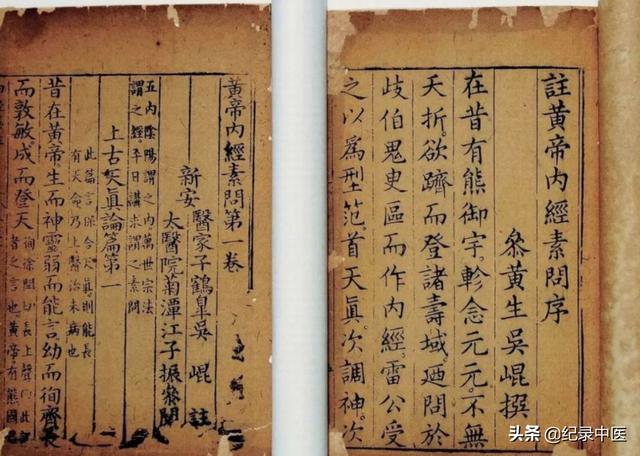 註黃帝內經素問序
叅黃生吳崐撰
在昔有熊御宇。軫念元元。不無
夭折。欲躋而登諸壽域。廼問於
歧伯鬼臾區而作內經。雷公受
之以為型范。首天真。次調神。次
黃帝內經素問第一卷
新安
醫家子鶴皐吳 崐 註
太醫院菊潭江子振叅閱
五內陰陽謂之內。萬世宗法
謂之經。平日講求謂之素問
上古天真論篇第一
此篇言保合天真則能長
有天命。乃上醫治未病也
昔在黃帝。生而神靈。弱而能言。幼而徇齊。長
而敦敏。成而登天
徇徐閏切。長上聲。
者之言也。黃帝。有熊國
头条 @纪录中医